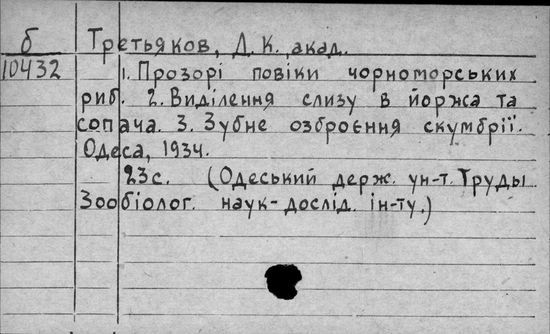 б Третьяков, Д. К. акад.
10432 1. Прозорі повіки чорноморських
риб. 2. Виділення слизу в йоржа та
сопача. 3. Зубне озброєння скумбрії.
Одеса, 1934.
23с. (Одеський держ. ун-т. Труды
Зообіолог. наук-дослід. ін-ту.)